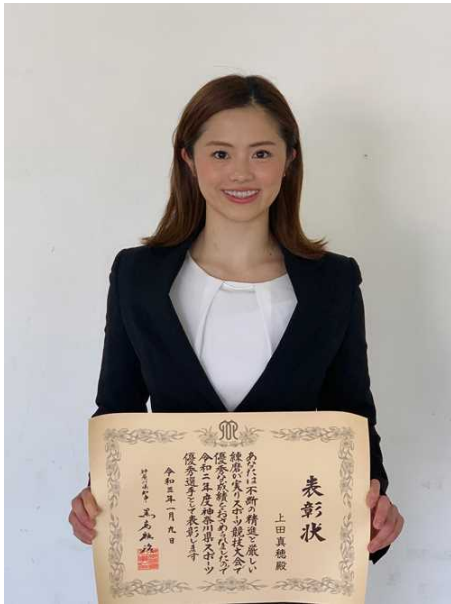 表彰状
上田真穂殿
あなたは不断の精進と厳しい
練磨が実りスポーツ競技大会で
優秀な成績をおさめられましたので
令和二年度神奈川県スポーツ
優秀選手として表彰します
令和三年一月九日
神奈川県知事 黒岩祐治